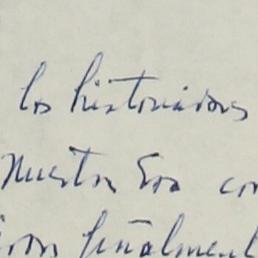 los historiadores
nuestra Era con
finalment